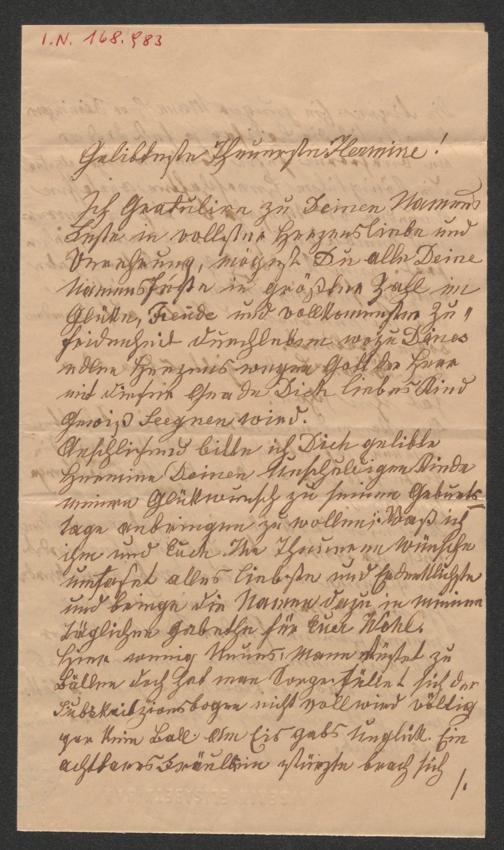 I.N. 168.983
Geliebteste Theuerste Hermine!
Ich Gratulire zu Deinen Namens
Feste in vollster Herzensliebe und
Verehrung, mögest Du alle Deine
Namensfeste in größter Zahl im
Glüke, Freude und vollkommenster Zu=
fridenheit durchleben wozu Deines
edlen Herzens wegen Gott der Herr
mit dieser Gnade Dich liebes Kind
gewiß Seegnen wird.
Anschließend bitte ich Dich gelibte
Hermine Deinen Unschuldigen Kinde
meinen Glükwunsch zu seinen Geburts=
tage anbringen zu wollen; Waß ich
ihm und Euch Ihr Theueren wünsche
umfaßet alles liebste und
und bringe die Namen dazu in meinen
täglichen Gebethe für Euer Wohl.
Hier wenig Neues. Mann rüstet zu
Bällen doch hat man Sorge füllet sich der
nicht voll wird völlig
gar kein Ball. Am Eis gabs Unglük. Ein
achtbares Fräulein stürzte brach sich
/.